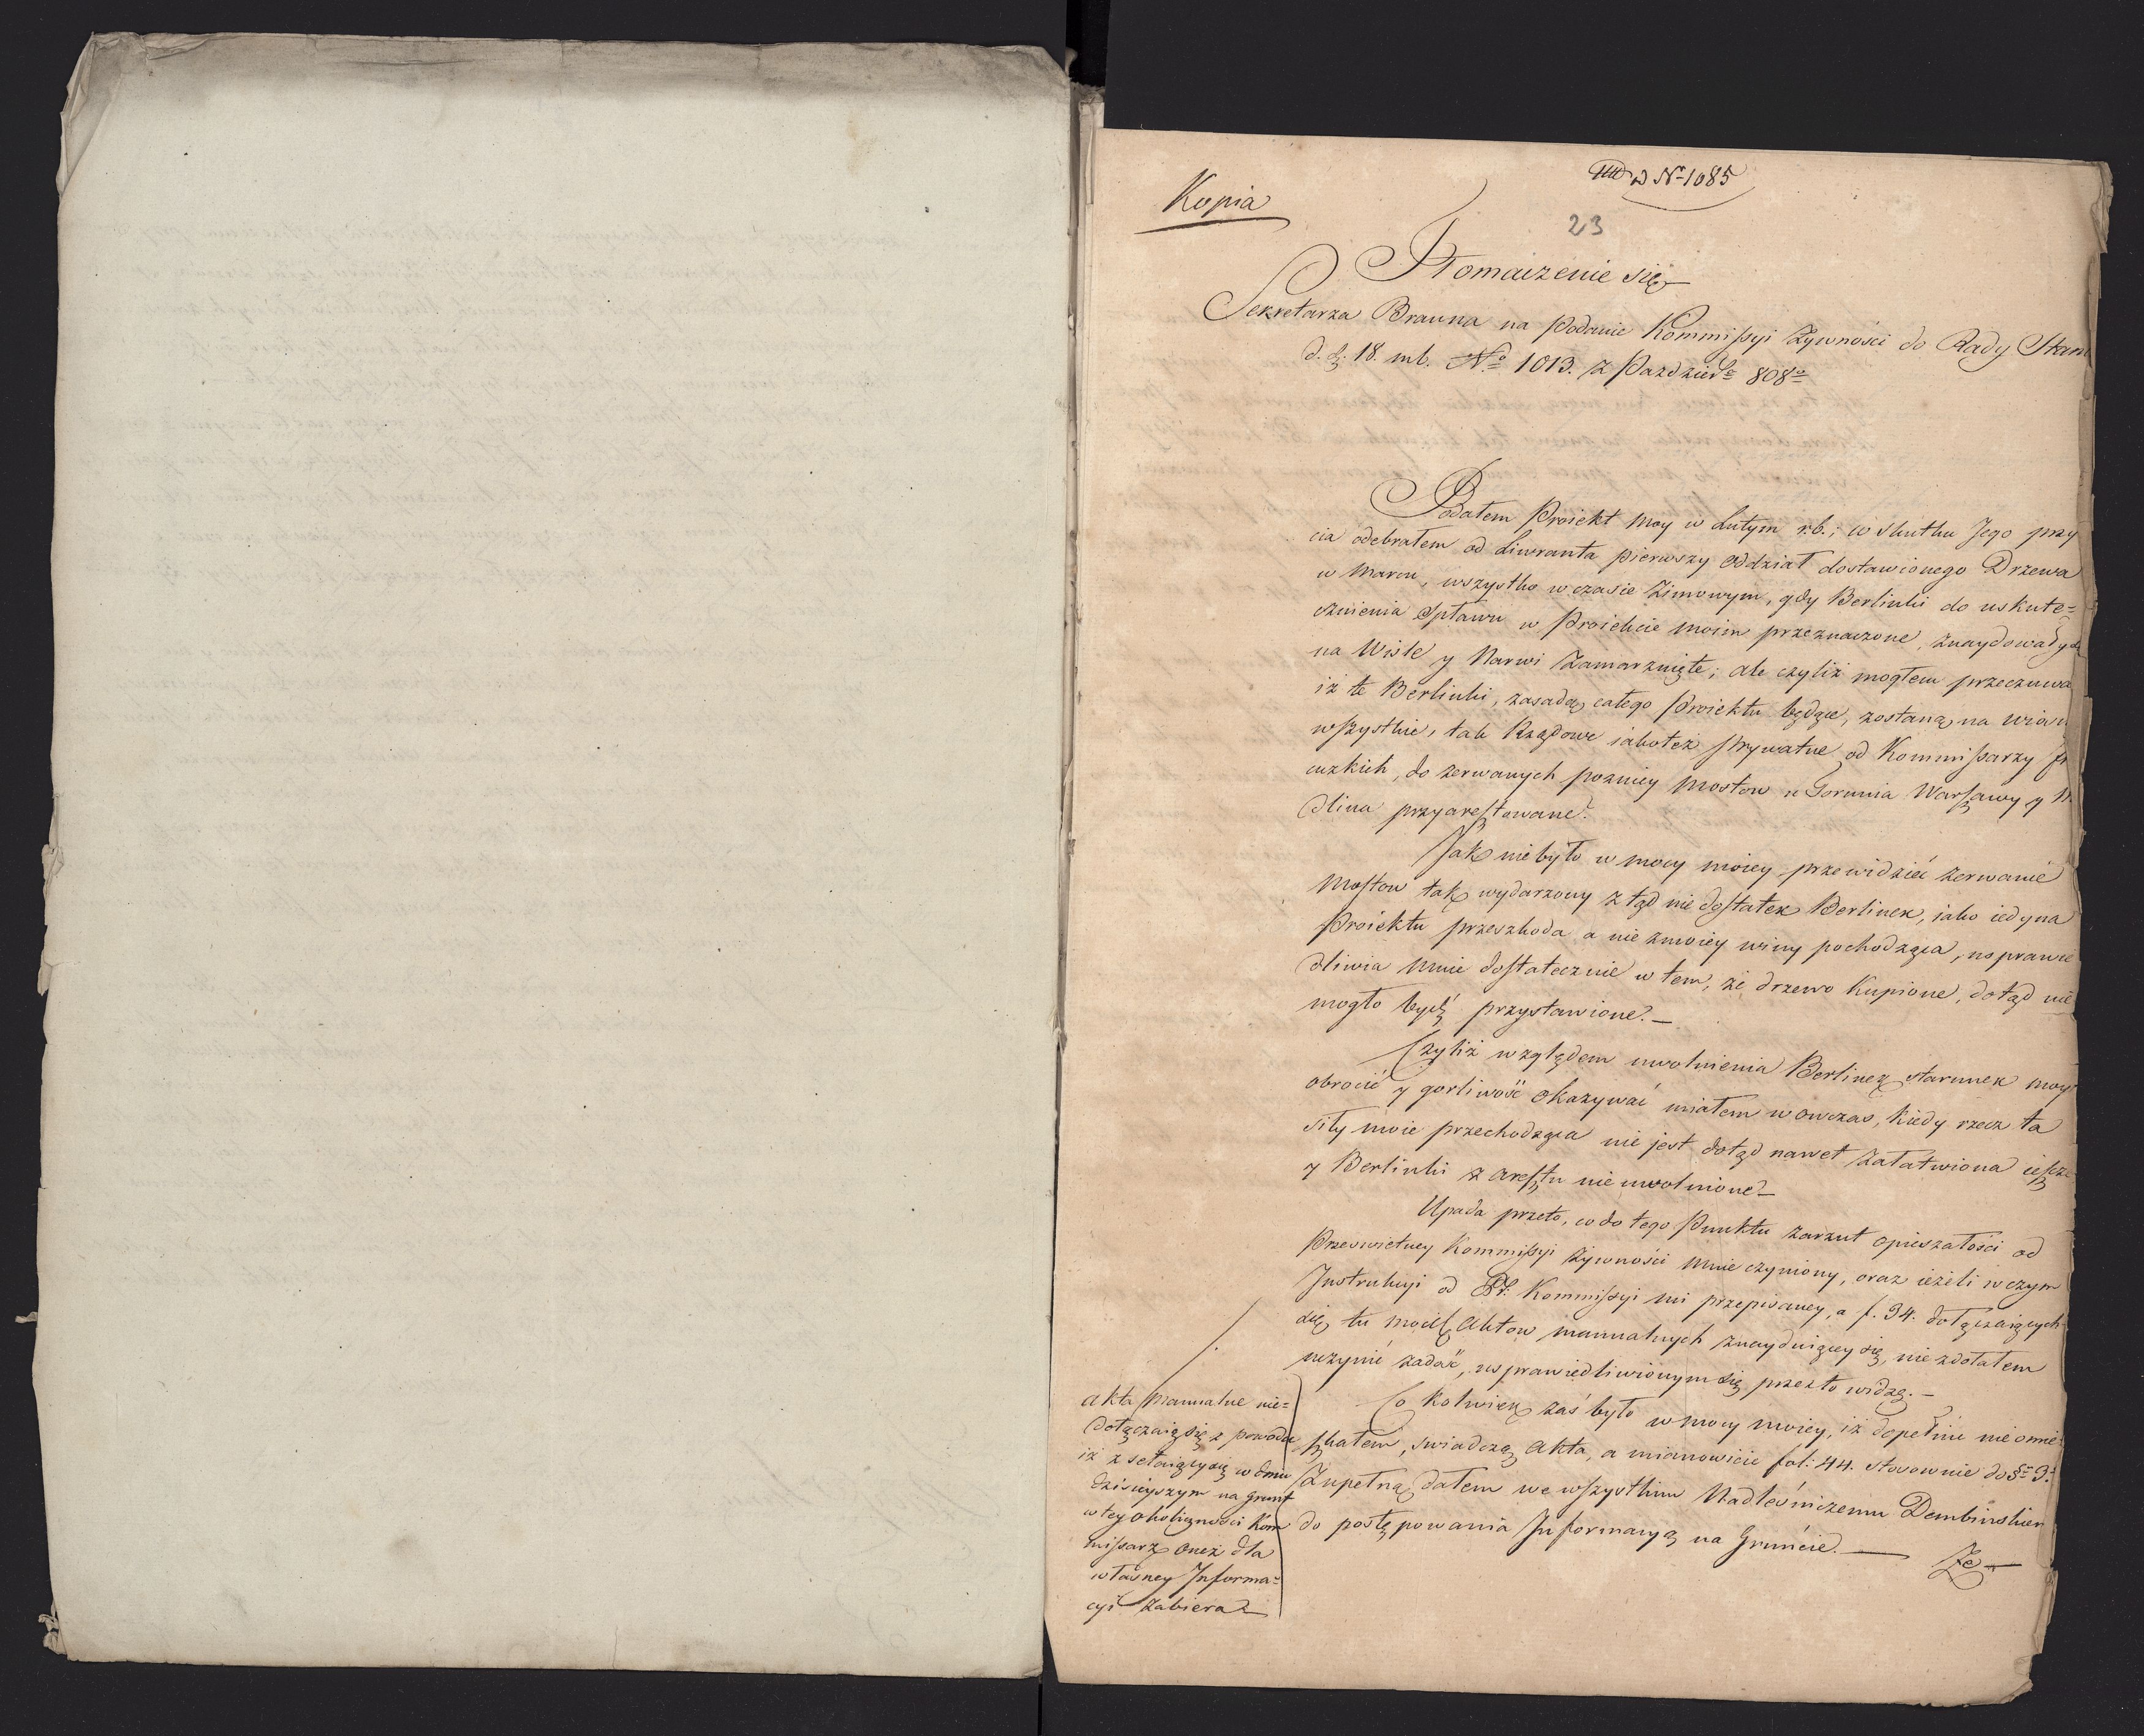 Kopia
ad Nº 1085
23
Tłomaczenie się
Sekretarza Brauna na Podanie Kommissyi Żywności do Rady Stanu
d. d. 18. mb. Nº 1013. z Paździer. 808º
Podałem Proiekt moy w Lutym r.b.; w skutku Jego przy
cia odebrałem od Liwranta pierwszy oddział dostawionego Drzewa
w Marcu, wszystko w czasie Zimowym, gdy Berlinki do uskute=
cznienia Spławu w Proiekcie moim przeznaczone, znaydowały się
na Wiśle y Narwi Zamarznięte; ale czyliż mogłem przeczuwa
iż te Berlinki, zasadą całego Proiektu będące, zostaną na wiosn
wszystkie, tak Rządowe iakoteż Prywatne od Kommissarzy Fr
cuzkich, do zerwanych pozniey Mostow u Torunia Warszawy y M
dlina przyaresztowane?
Jak nie było w mocy moiey przewidzieć zerwanie
Mostow tak wydarzony z tąd nie dostatek Berlinek, iako iedyna
Proiektu przeszkoda a nie z moiey winy pochodząca, usprawie
dliwia mnie dostatecznie w tem, że drzewo Kupione, dotąd nie
mogło bydź przystawione. —
Czyliż względem uwolnienia Berlinek starunek moy
obrocić y gorliwość okazywać miałem w owczas, kiedy rzecz ta
siły moie przechodząca nie jest dotąd nawet załatwiona ieszcze
y Berlinki z aresztu nie uwolnione? —
Upada przeto, co do tego Punktu zarzut opieszałości od
Prześwietney Kommissyi Żywności mnie czyniony, oraz ieżeli w czym
Instrukcyi od Pr. Kommissyi mi przepisaney, a f. 34. dołączaiących
się tu moich Aktow manualnych znayduiącey się, nie zdołałem
uczynić zadość, usprawiedliwionym się przezto widzę. —
Co kolwiek zaś było w mocy moiey, iż dopełnić nie omie
szkałem, świadczą Akta, a mianowicie fol: 44. stosownie do § 3.
Zupełną dałem we wszystkim Nadleśniczemu Dembinskiem
do postępowania Informacyą na Gruncie. —
Ze —
Akta Manualne nie=
dołączaią się z powodu
iż z sełaiący się w dniu
dzisieyszym na grunt
w tey okoliczności Kom
missarz oneż dla
własney Informa=
cyi zabiera —